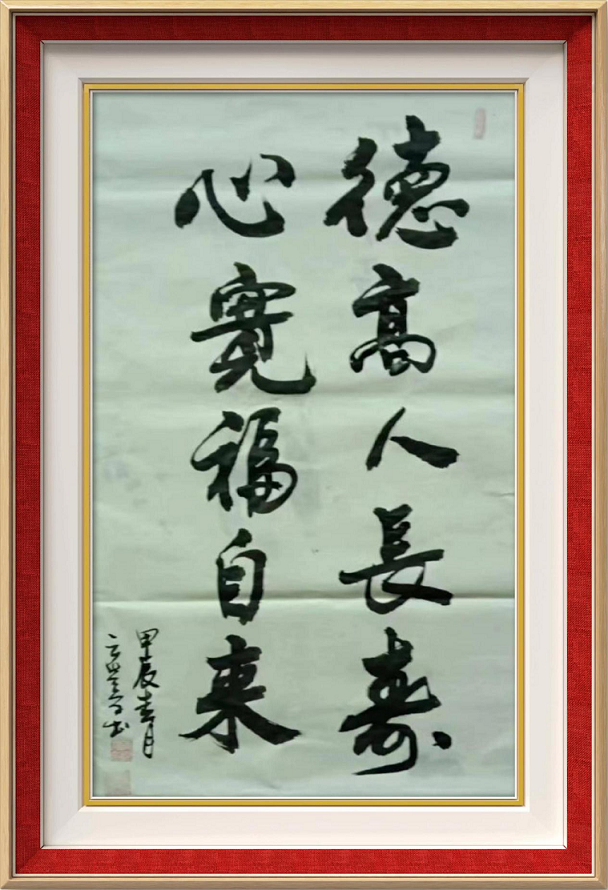 德高人長壽
心寬福自来
甲辰春月